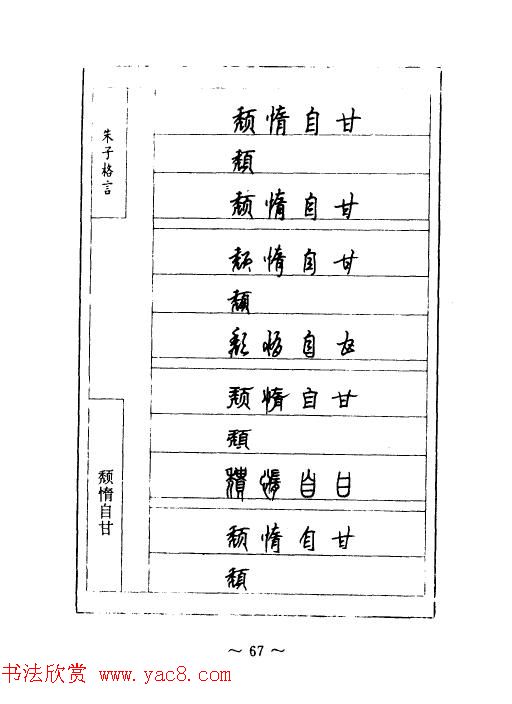 朱子格言
颓惰自甘
颓惰自甘
頹
颓惰自甘
颓惰自甘
頹
颓惰自甘
颓惰自甘
頹
頹惰自甘
颓惰自甘
頹
～ 67 ～
书法欣赏 www.yac8.com